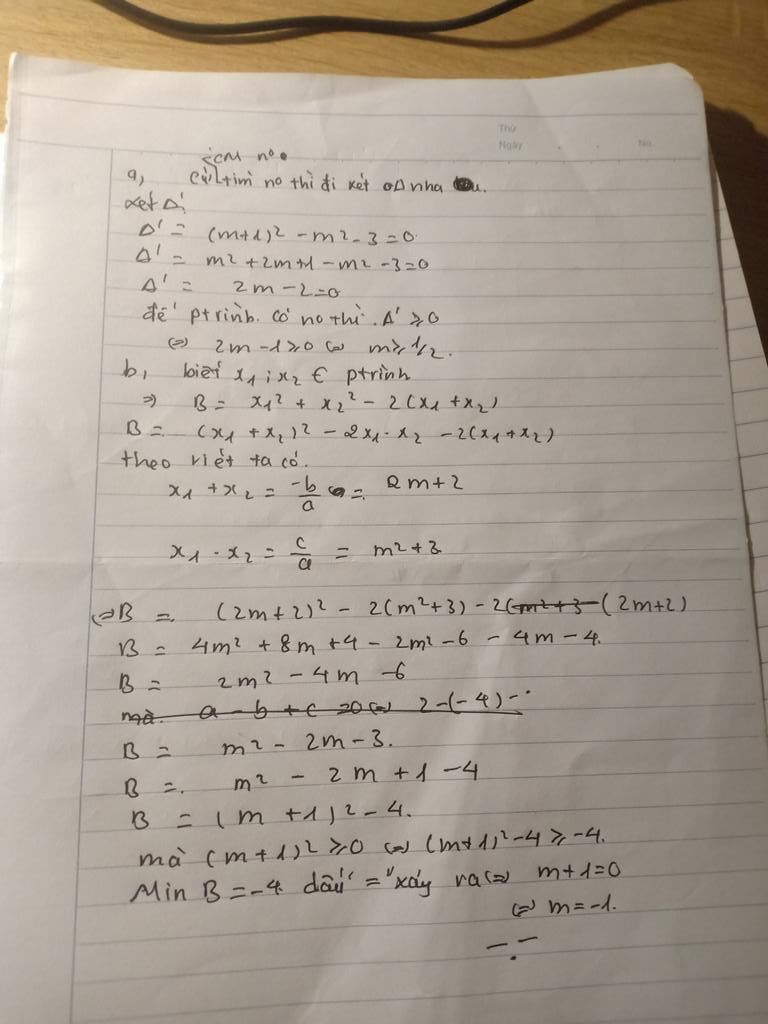 Thứ
Ngày . . No.
CM no
a, tìm no thì đi xét Δ nha
xét Δ'
Δ' = (m+1)² - m² - 3 = 0
Δ' = m² + 2m + 1 - m² - 3 = 0
Δ' = 2m - 2 = 0
để ptrình có no thì. Δ' ≥ 0
⇔ 2m - 1 ≥ 0 ⇔ m ≥ 1/2.
b, biết x₁; x₂ ∈ ptrình
⇒ B = x₁² + x₂² - 2(x₁ + x₂)
B = (x₁ + x₂)² - 2x₁ · x₂ - 2(x₁ + x₂)
theo viết ta có.
x₁ + x₂ = -b/a = 2m + 2
x₁ · x₂ = c/a = m² + 3
⇔ B = (2m + 2)² - 2(m² + 3) - 2(m² + 3 (2m + 2)
B = 4m² + 8m + 4 - 2m² - 6 - 4m - 4.
B = 2m² - 4m - 6
mà. a - b + c = 0 ⇔ 2 - (-4) -
B = m² - 2m - 3.
B = m² - 2m + 1 - 4
B = (m + 1)² - 4.
mà (m + 1)² ≥ 0 ⇔ (m + 1)² - 4 ≥ -4.
Min B = -4 dấu "=" xảy ra ⇔ m + 1 = 0
⇔ m = -1.